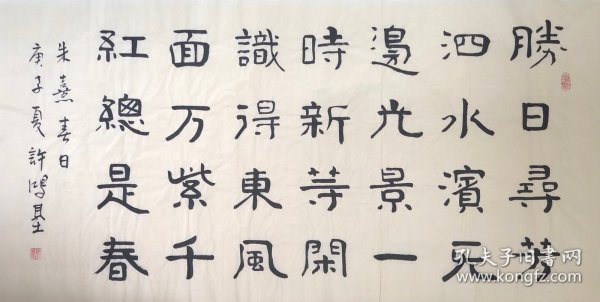 勝日尋芳
泗水濱无
邊光景一
時新等閑
識得東風
面万紫千
紅總是春
朱熹春日
庚子夏許鴻基
孔夫子旧书网
www.kongfz.com